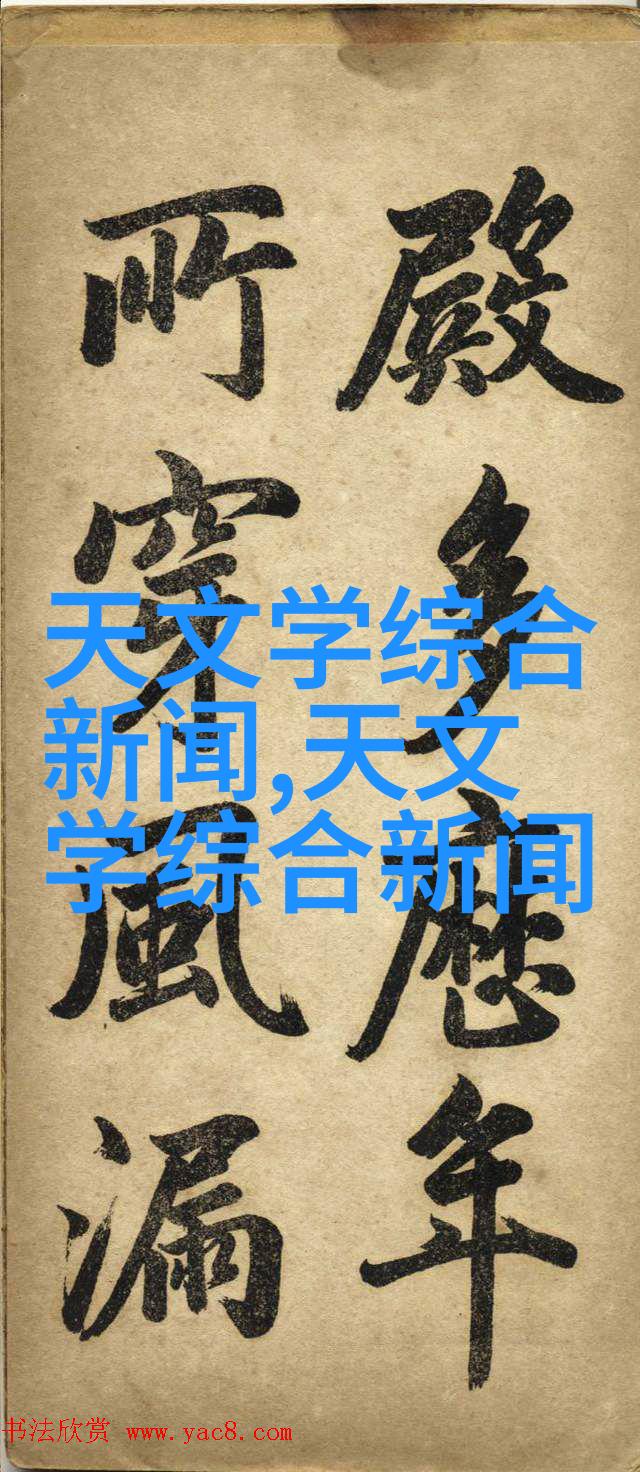 殿多歷年
所穿風漏
天文学综合
新闻,天文
学综合新闻
书法欣赏 www.yac8.com